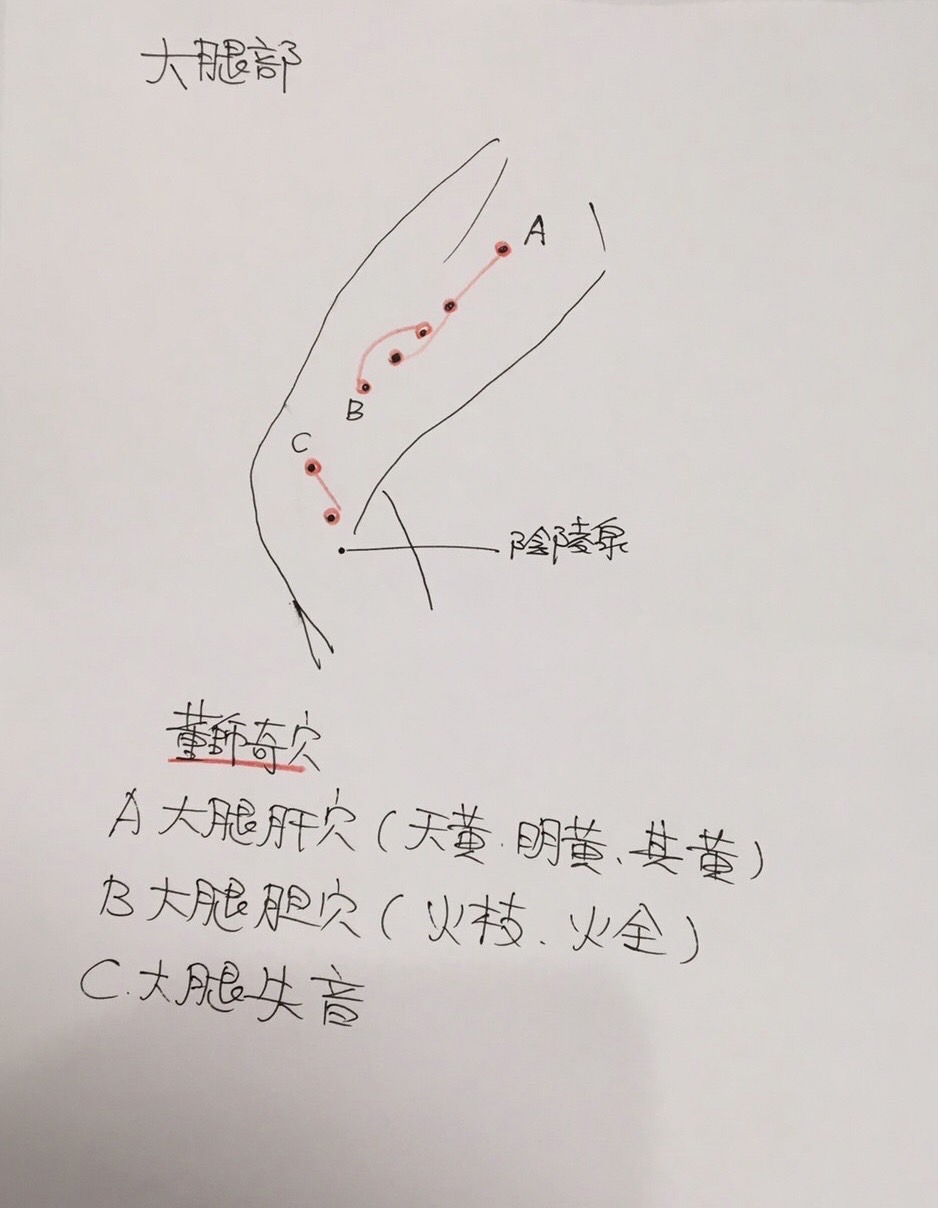 大腿部
A
B
C
阴陵泉
董师奇穴
A 大腿肝穴(天黄.明黄、其黄)
B 大腿胆穴(火枝.火全)
C.大腿失音